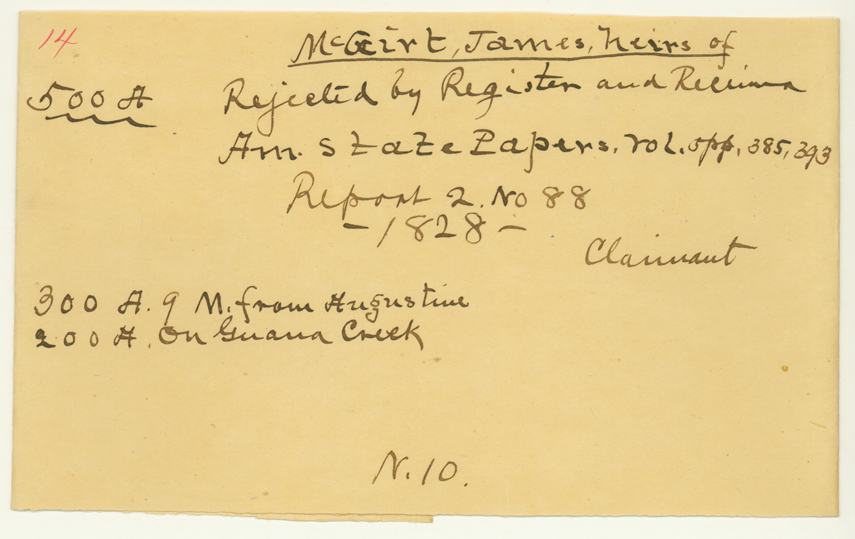 14
McGirt, James, heirs of
500 A Rejected by Register and Receiver
Am. State Papers, vol. 5 pp, 385, 393
Report 2. No 88
- 1828 -
Claimant
300 A. 9 M. from Augustine
200 A. On Guana Creek
N. 10.